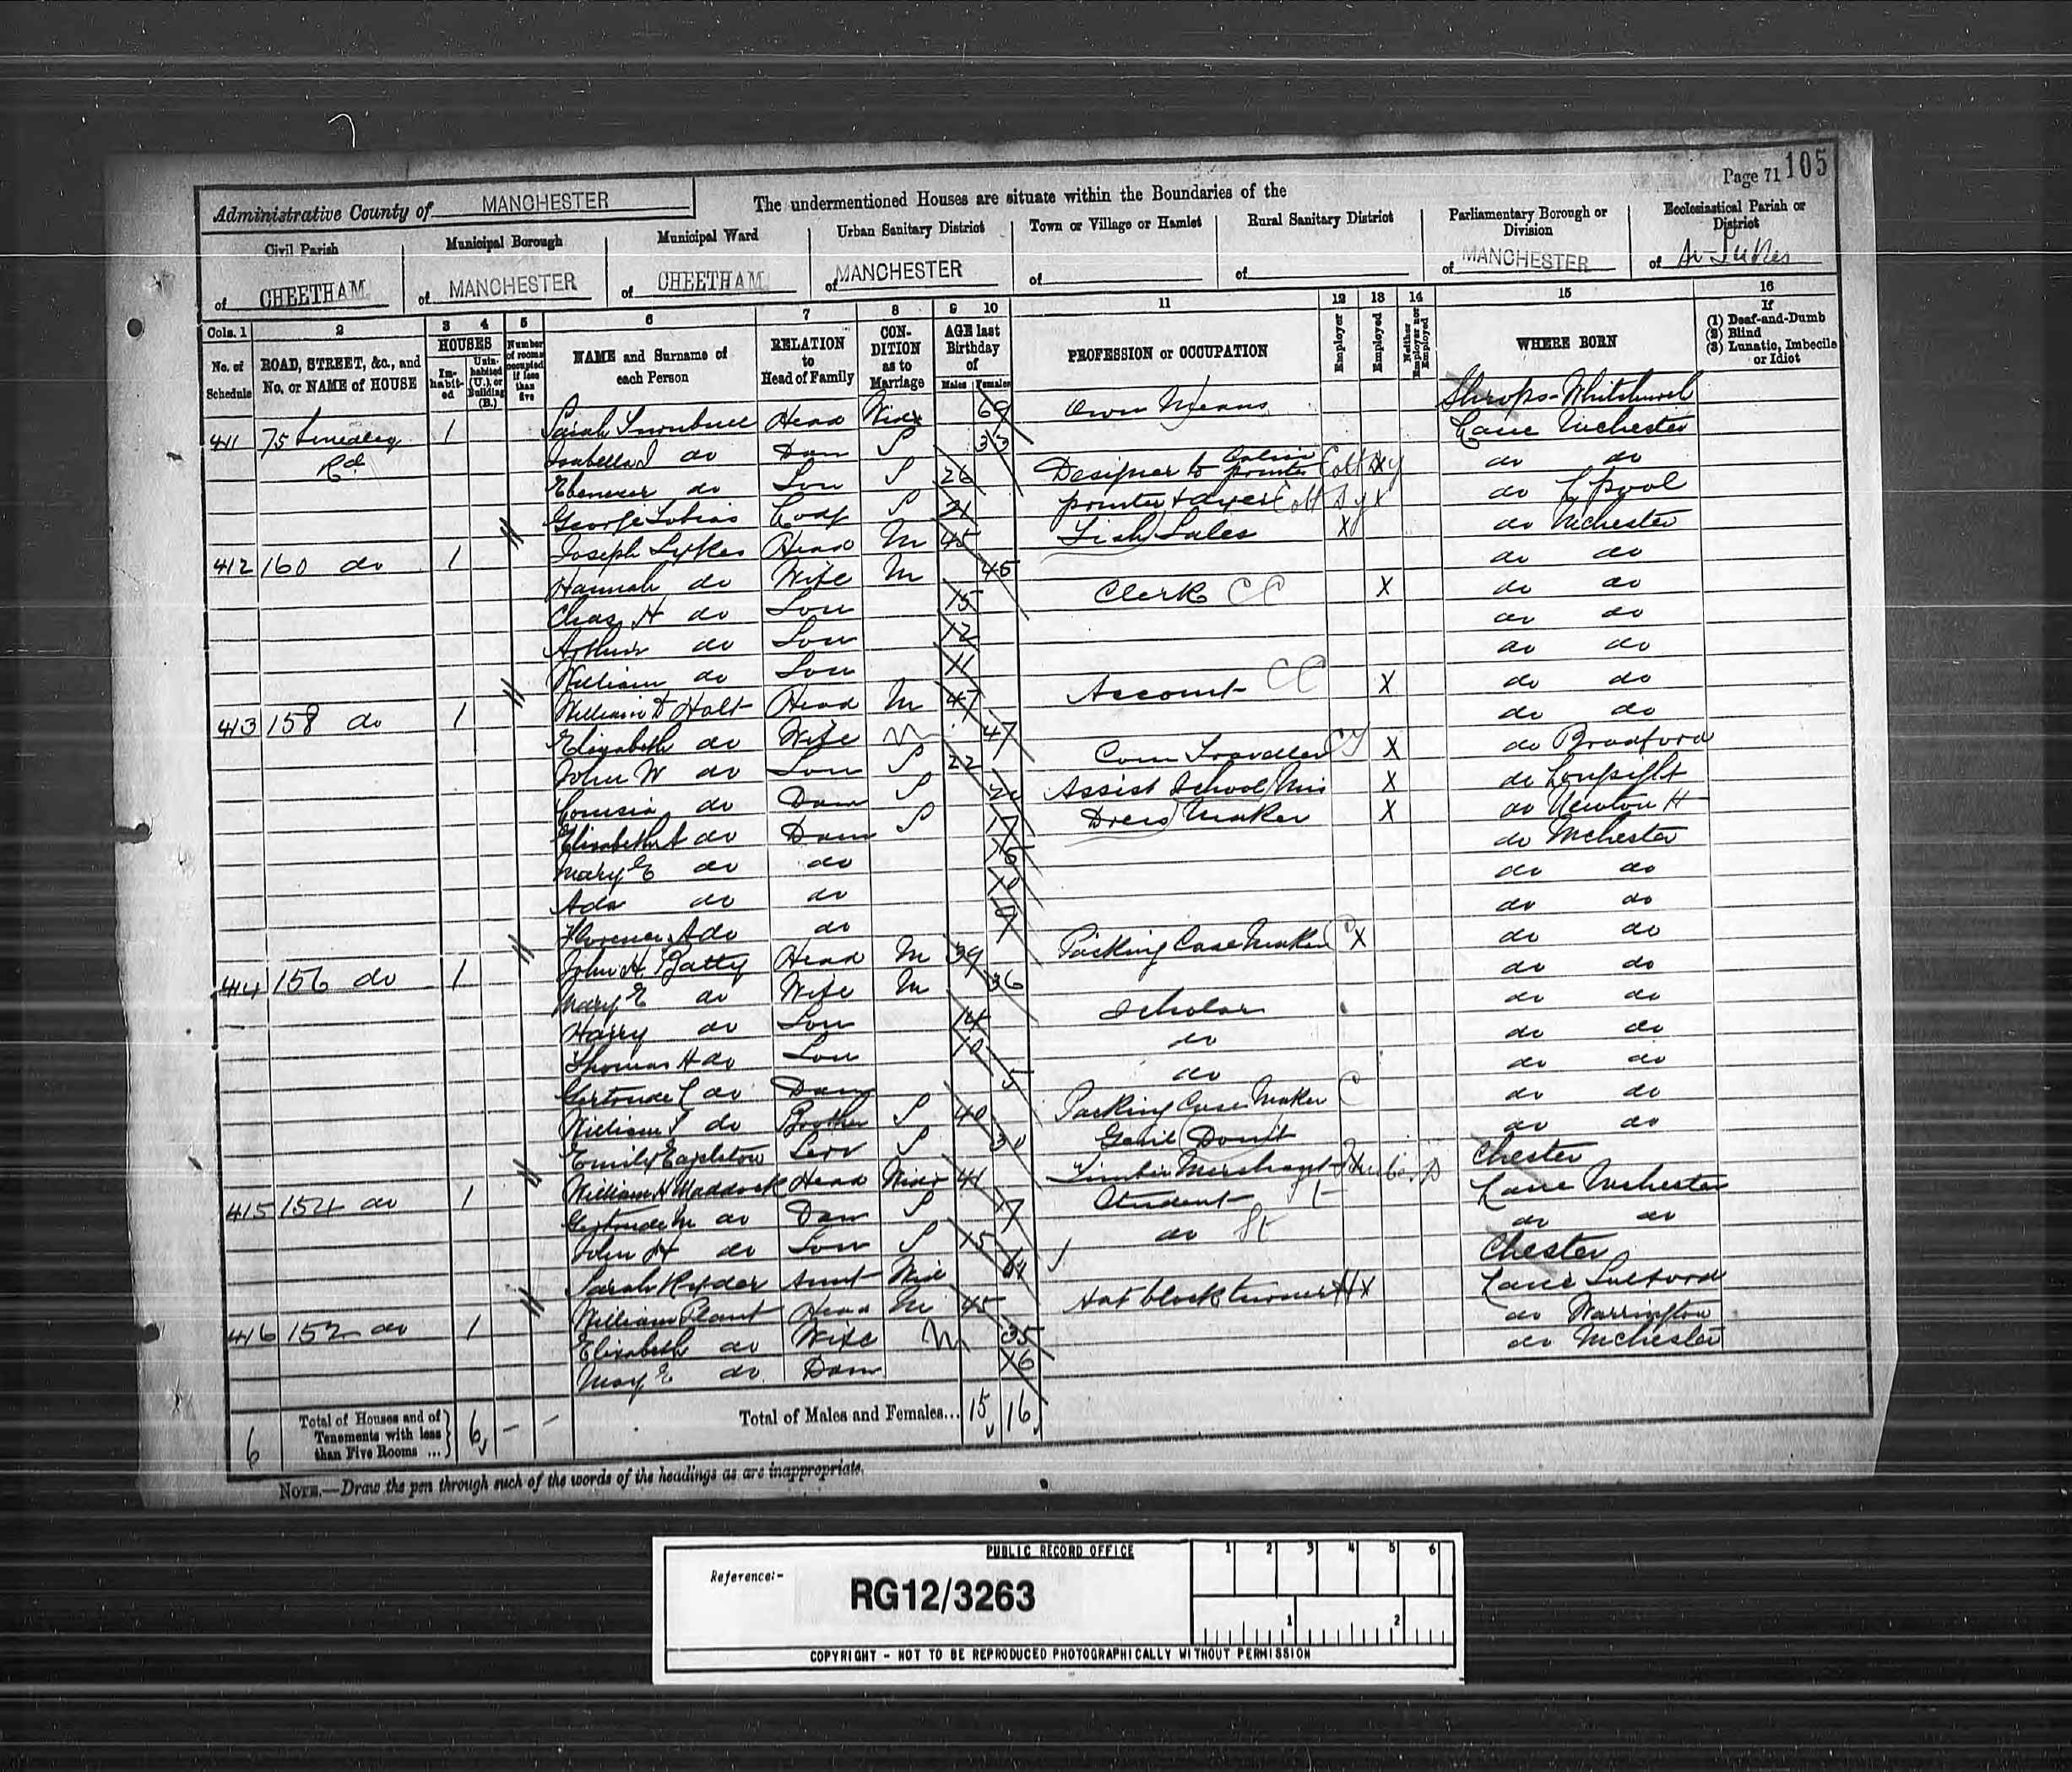 Page 71 105
Administrative County of MANCHESTER
The undermentioned Houses are situate within the Boundaries of the
Civil Parish
of CHEETHAM
Municipal Borough
of MANCHESTER
Municipal Ward
of CHEETHAM
Urban Sanitary District
of MANCHESTER
Town or Village or Hamlet
of
Rural Sanitary District
of
Parliamentary Borough or Division
of MANCHESTER
Ecclesiastical Parish or District
of St Lukes
Cols. 1 2 3 4 5 6 7 8 9 10 11 12 13 14 15 16
No. of Schedule
ROAD, STREET, &c., and No. or NAME of HOUSE
HOUSES
Inhabited
Uninhabited (U.), or Building (B.)
Number of rooms occupied if less than five
NAME and Surname of each Person
RELATION to Head of Family
CONDITION as to Marriage
AGE last Birthday of
Males Females
PROFESSION or OCCUPATION
Employer
Employed
Neither Employer nor Employed
WHERE BORN
If
(1) Deaf-and-Dumb
(2) Blind
(3) Lunatic, Imbecile or Idiot
411 75 Rd 1 Sarah Head Wid 69 Own Means Shrops-
Isabella J do Dau S 33 Lanc Mchester
Ebenezer do Son S 26 Designer to Calico printer X do do
George Tobias S 21 printer & dyer X do L'pool
412 160 do 1 Joseph Sykes Head M 45 Fish Sales X do Mchester
Hannah do Wife M 45 do do
Chas H do Son 15 Clerk CC X do do
Arthur do Son 12 do do
William do Son 11 do do
413 158 do 1 William D Holt Head M 47 Account CC X do do
Elizabeth do Wife M 47 do do
John W do Son S 22 Com Traveller X do Bradford
do Dau S Assist School Mis X do Longsight
Elizabeth A do Dau S 17 Dress Maker X do Newton H
Mary E do do 15 do Mchester
Ada do do 10 do do
Florence A do do 9 do do
414 156 do 1 John H Batty Head M 39 Packing Case Maker X do do
Mary E do Wife M 36 do do
Harry do Son 14 Scholar do do
Thomas H do Son 10 do do do
Gertrude L do Dau 5 do do do
William do Brother S 40 Packing Case Maker C do do
Emily Eagleton Serv S 30 Genl Domst do do
415 154 do 1 William H Maddock Head Widr 41 Timber Merchant X Chester
Gertrude M do Dau S 17 Student Lanc Mchester
John H do Son S 15 do St do do
Sarah Ryder Aunt Wid 64 Chester
416 152 do 1 William Plant Head M 45 Hat block turner X Lanc Salford
Elizabeth do Wife M 35 do Warrington
May E do Dau 16 do Mchester
6 Total of Houses and of Tenements with less than Five Rooms ... 6 – – Total of Males and Females... 15 16
NOTE.—Draw the pen through such of the words of the headings as are inappropriate.
PUBLIC RECORD OFFICE
1 2 3 4 5 6
Reference:-
RG12/3263
1 2
COPYRIGHT - NOT TO BE REPRODUCED PHOTOGRAPHICALLY WITHOUT PERMISSION